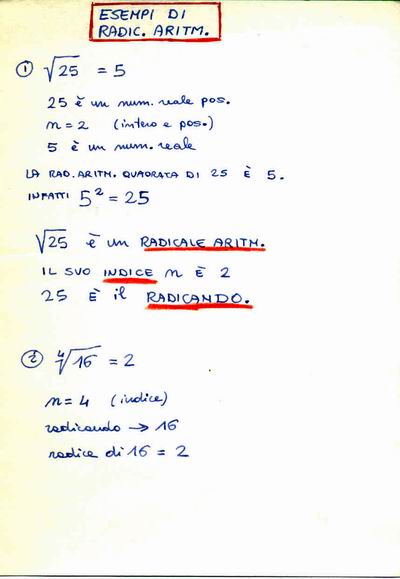 ESEMPI DI
RADIC. ARITM.
① √25 = 5
25 è un num. reale pos.
n = 2 (intero e pos.)
5 è un num. reale
LA RAD. ARITM. QUADRATA DI 25 È 5.
INFATTI 5² = 25
√25 è un RADICALE ARITM.
IL SUO INDICE n È 2
25 È il RADICANDO.
② ⁴√16 = 2
n = 4 (indice)
radicando → 16
radice di 16 = 2